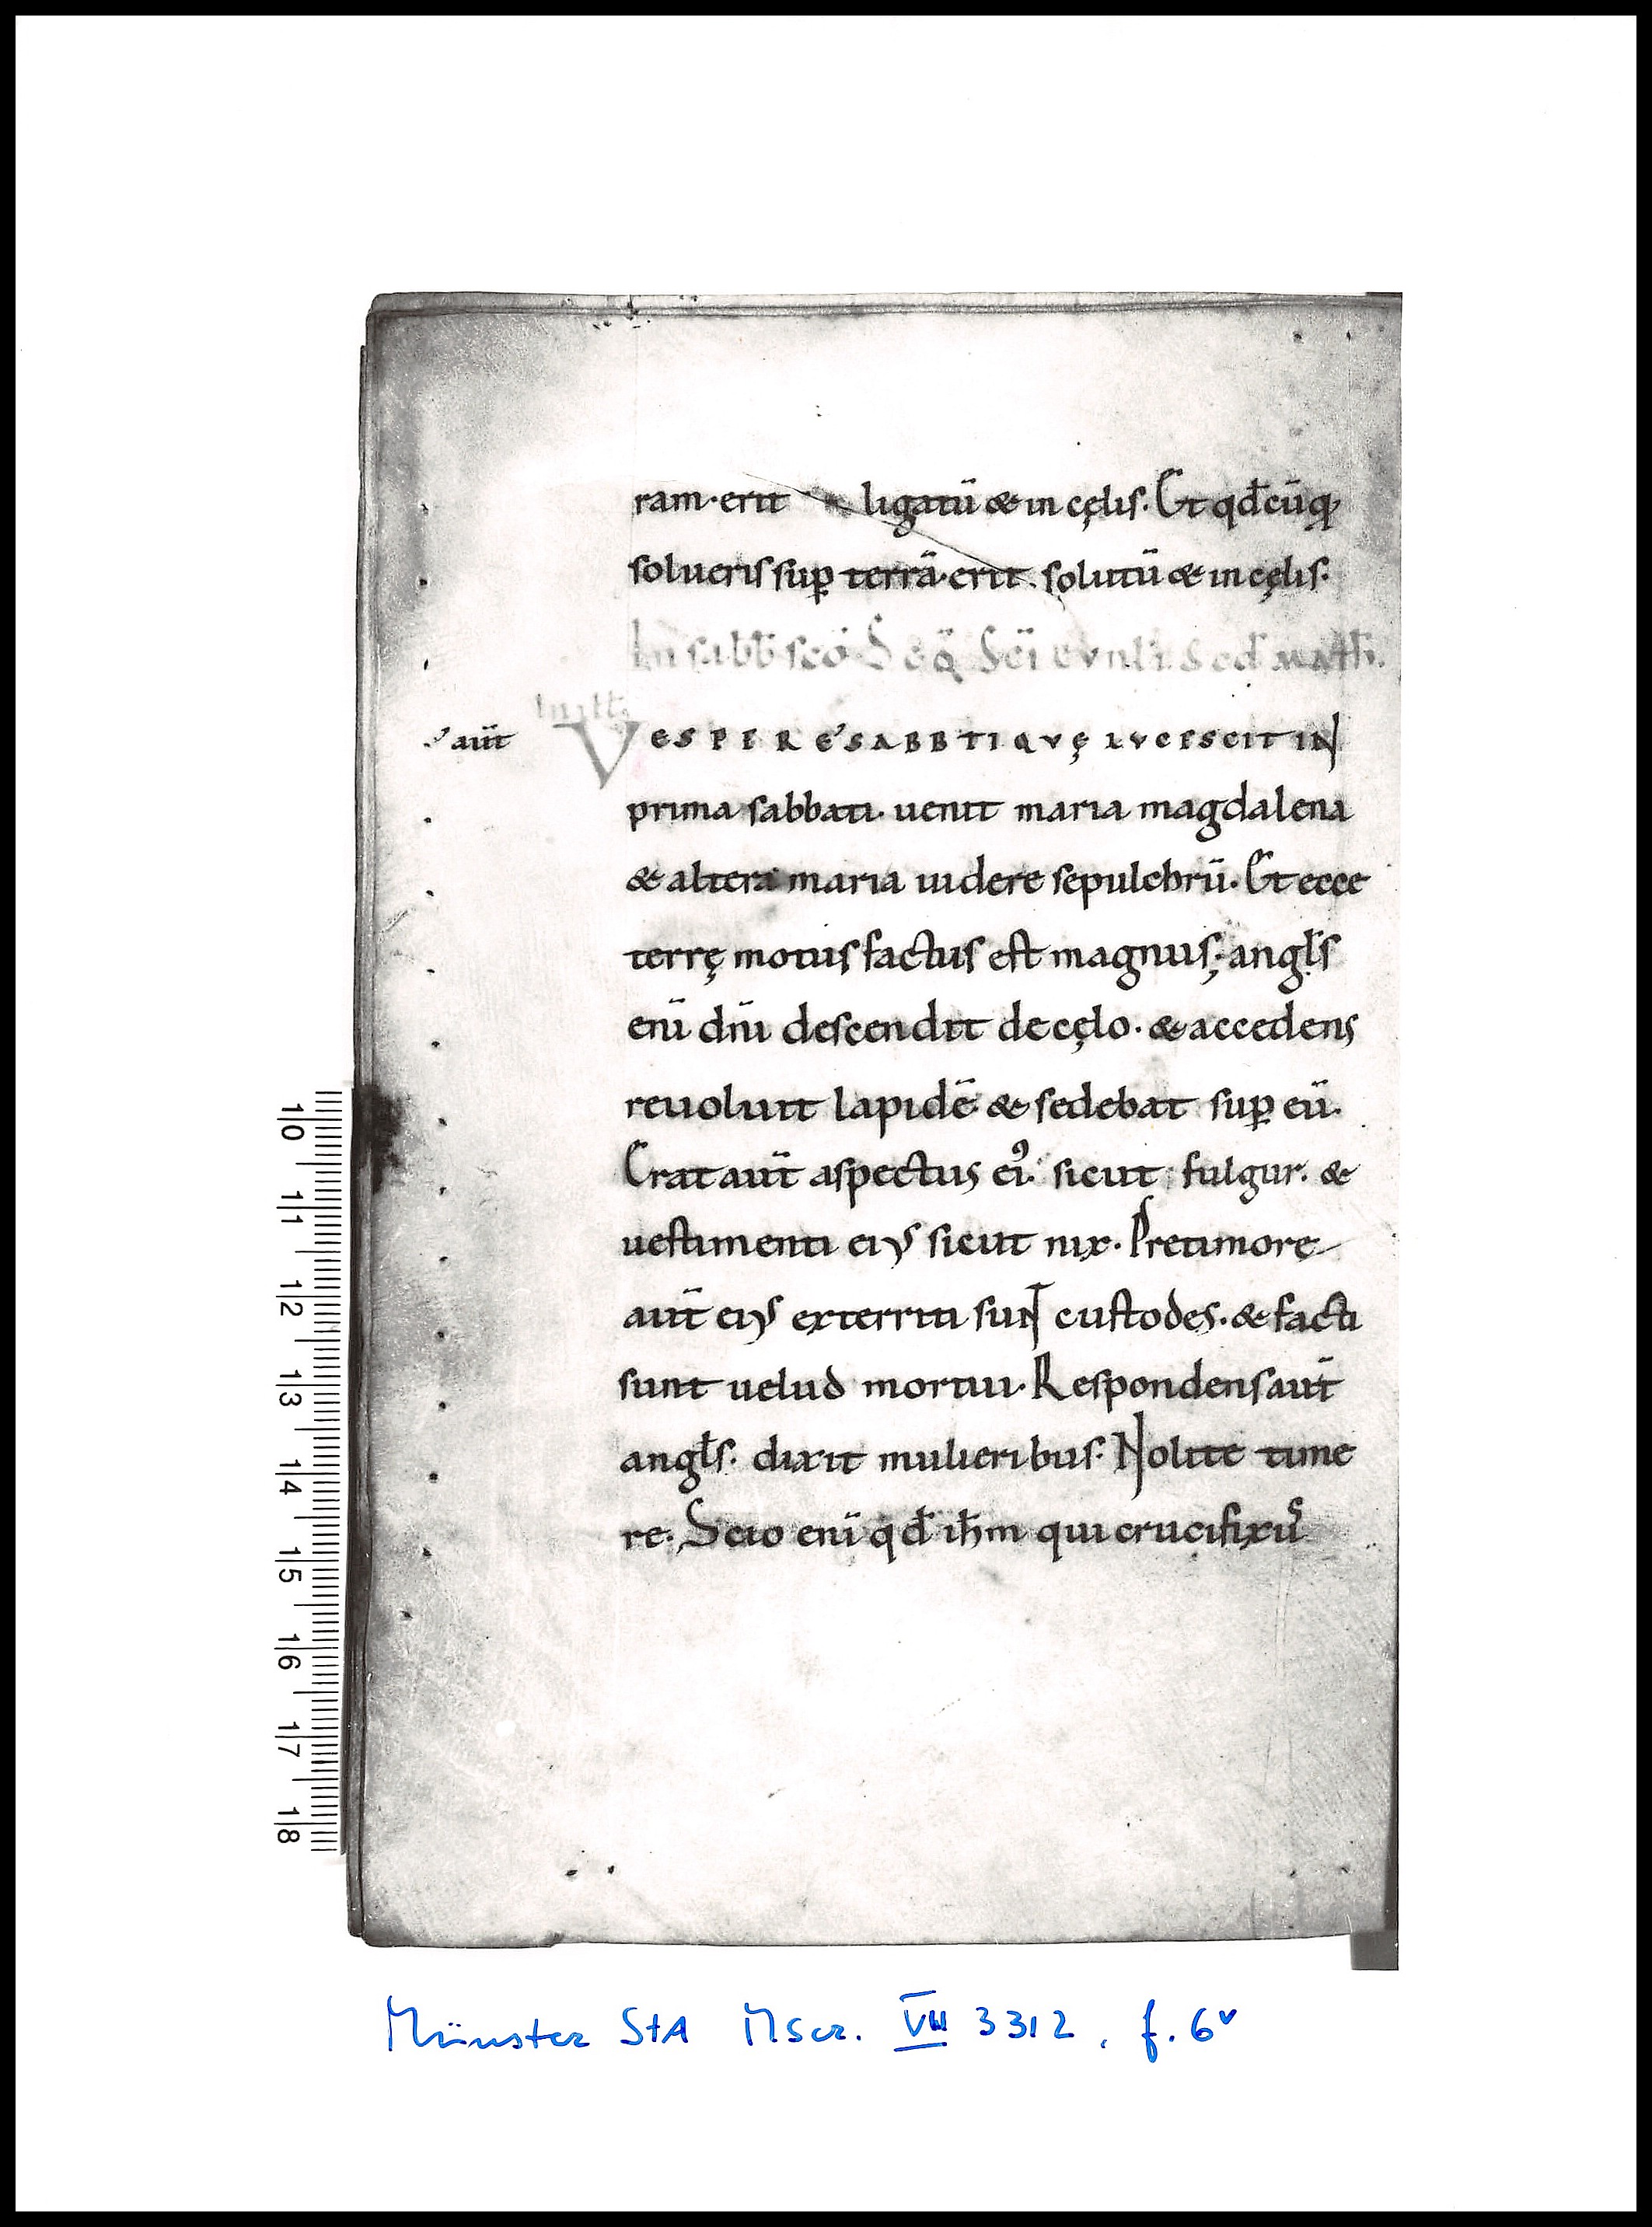 ram·erit ligatū & in cęlis. Et qđcūq;
solueris suꝑ terrā·erit. solutū & in cęlis.
In sabb̄ sc̄o Seq̄ sc̄i evnḡlī sec̄d math̄.
In ill̄t
aūt
VESPERE SABBTI QVĘ LVCESCIT IN
prima sabbati. uenit maria magdalena
& altera maria uidere sepulchrū. Et ecce
terrę motus factus est magnus; angl̄s
enī dn̄i descendit de cęlo. & accedens
reuoluit lapidē & sedebat suꝑ eū.
Erat aūt aspectus ei᾿ sicut fulgur. &
uestimenti eiꝰ sicut nix. Pretimore
aūt eiꝰ exterriti sunt custodes. & facti
sunt uelud mortui. Respondens aūt
angl̄s. dixit mulieribus. Nolite time
re. Scio enī qđ ih̄m qui crucifixus
10
11
12
13
14
15
16
17
18
Münster StA Mscr. VII 3312, f. 6v